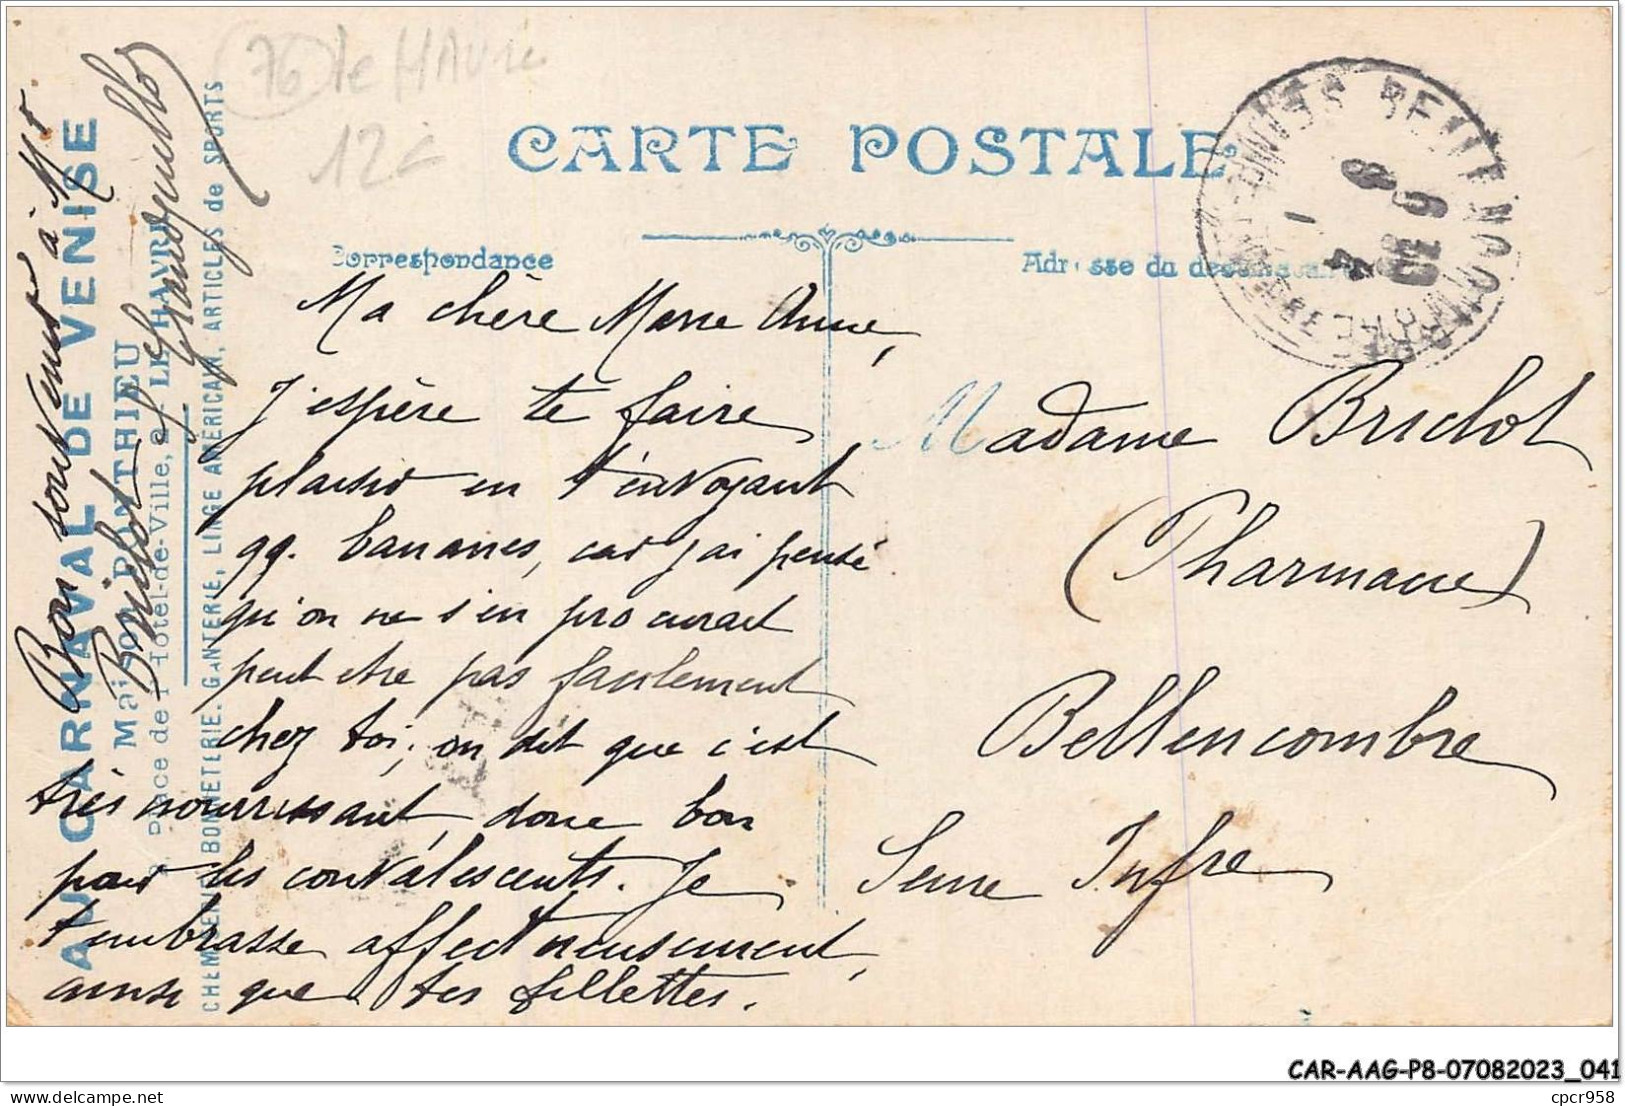 76 le HAVRE
12c
CARTE POSTALE
Correspondance
Adresse du destinataire
Ma chère Marie Anne,
J'espère te faire
plaisir en t'envoyant
qq. bananes, car j'ai pensé
qu'on ne s'en procurait
peut etre pas facilement
chez toi; on dit que c'est
très nourrissant, donc bon
pour les convalescents. Je
t'embrasse affectueusement,
ainsi que tes fillettes.
Madame Briclot
(Pharmacie)
Bellencombre
Seine Infre
Bon souvenir à Mr
Briclot
AU CARNAVAL DE VENISE
Maison PONTHIEU
Place de l'Hôtel-de-Ville, 2 - LE HAVRE
CHEMISERIE, BONNETERIE, GANTERIE, LINGE AMÉRICAIN, ARTICLES de SPORTS
CAR-AAG-P8-07082023_041
cpcr958